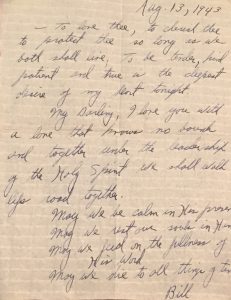 Aug. 13, 1943
— To love thee, to cherish thee
to protect thee so long as we
both shall live, To be tender, and
patient and true is the deepest
desire of my heart tonight.
My Darling, I love you with
a love that knows no bound
and together under the leadership
of the Holy Spirit we shall walk
life's road together.
May we be calm in His
May we rest, our souls in His
May we feed on the fullness of
His Word
May we die to all things of
Bill